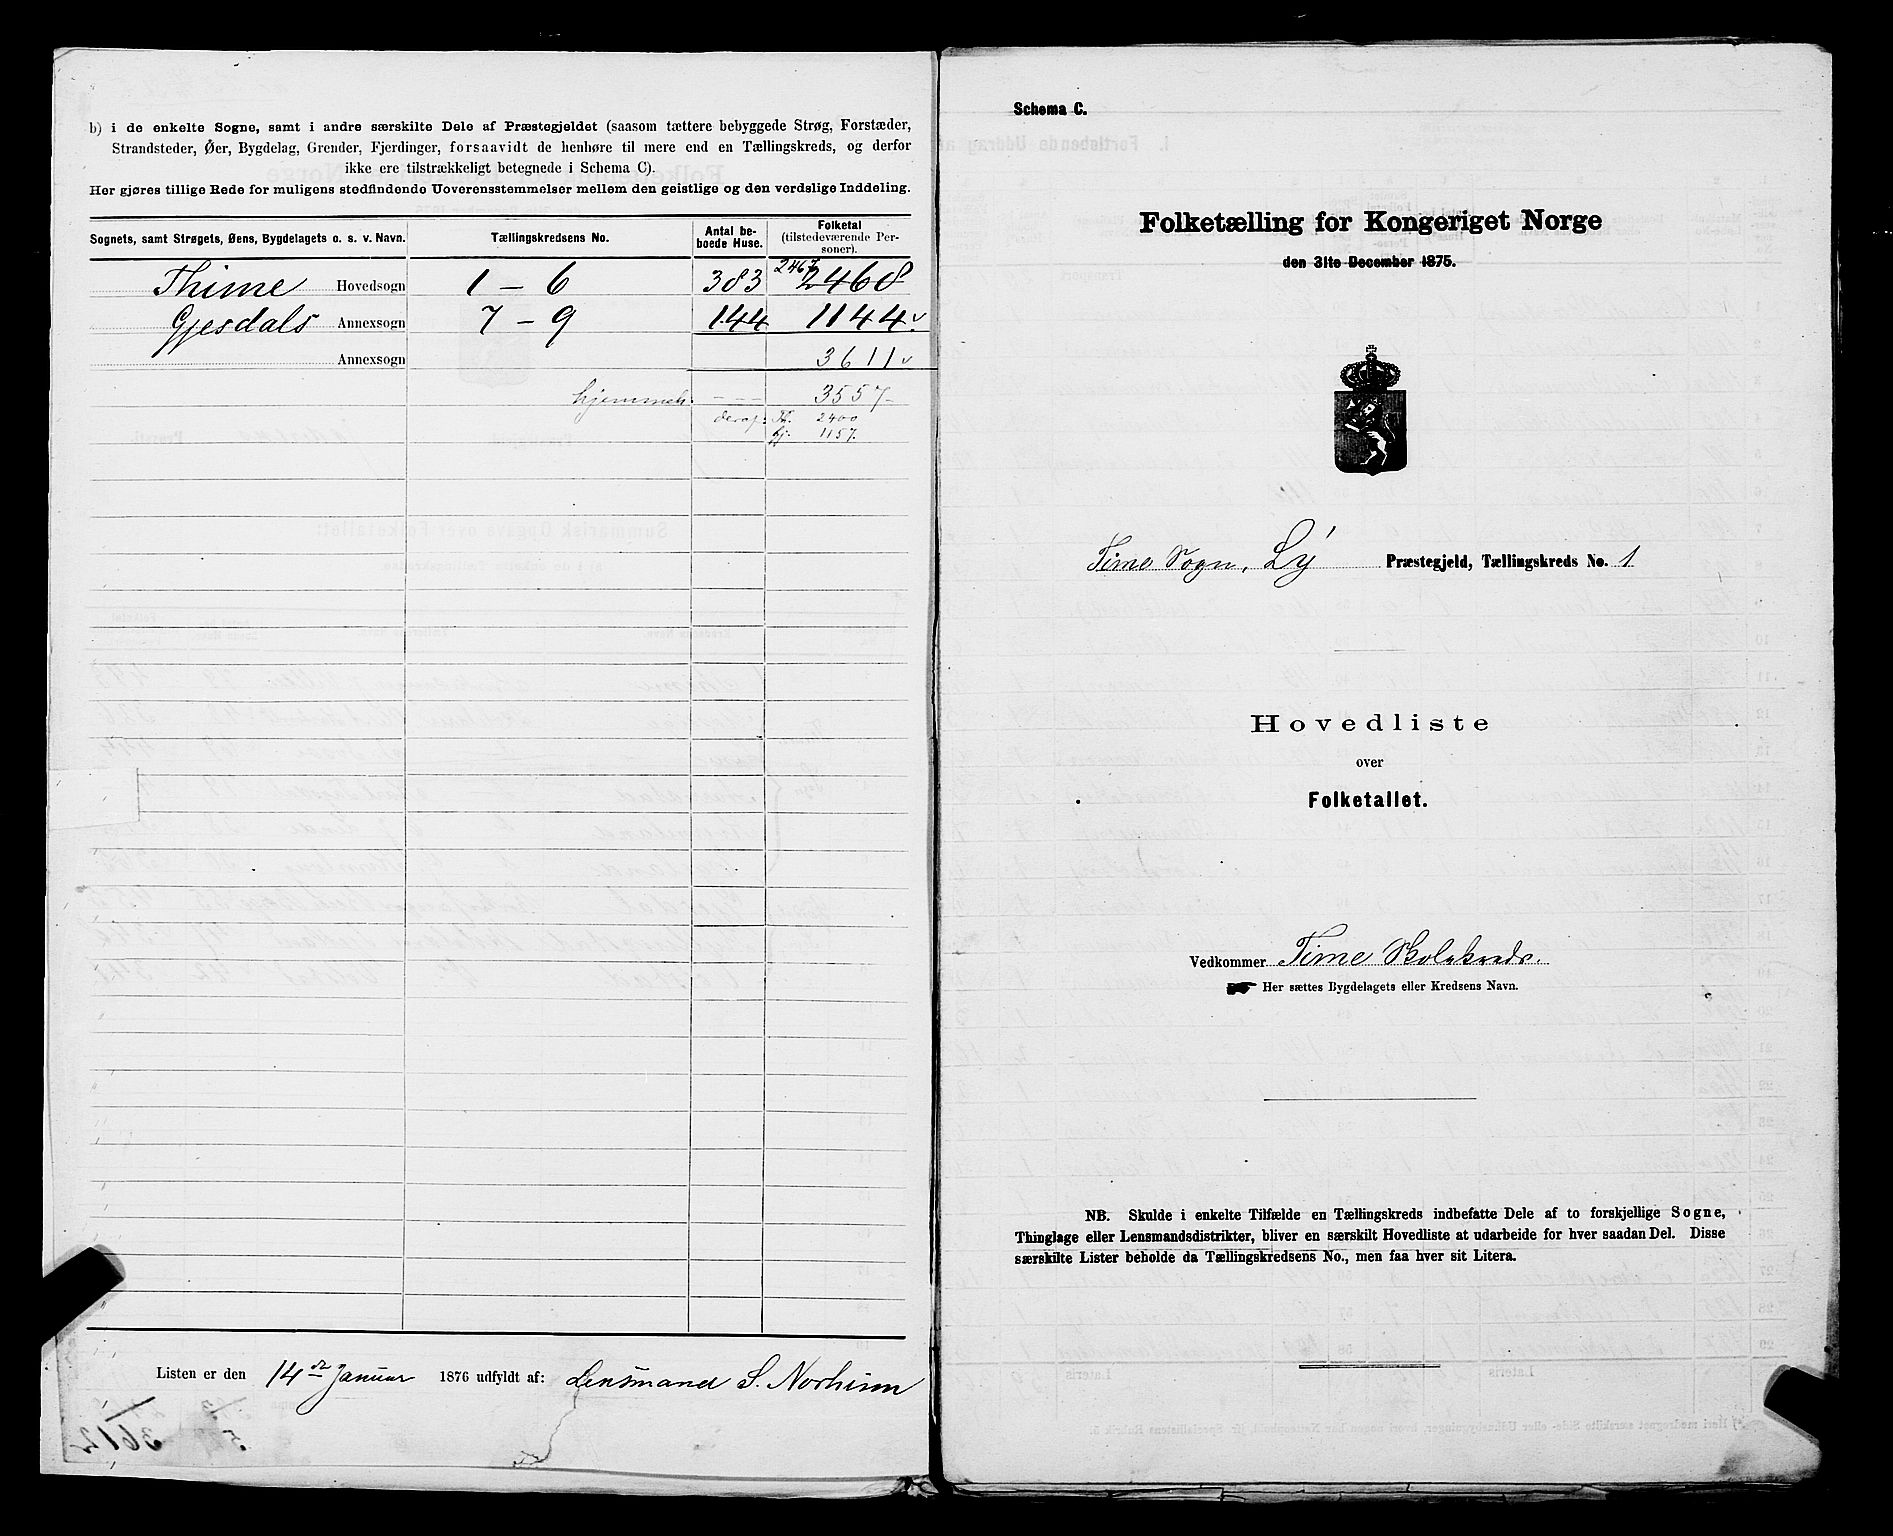 b) i de enkelte Sogne, samt i andre særskilte Dele af Præstegjeldet (saasom tættere bebyggede Strøg, Forstæder,
Strandsteder, Øer, Bygdelag, Grender, Fjerdinger, forsaavidt de henhøre til mere end en Tællingskreds, og derfor
ikke ere tilstrækkeligt betegnede i Schema C).
Her gjøres tillige Rede for muligens stedfindende Uoverensstemmelser mellem den geistlige og den verdslige Inddeling.
Sognets, samt Strøgets, Øens, Bygdelagets o. s. v. Navn. Tællingskredsens No. Antal be- Folketal
boede Huse. (tilstedeværende Per-
soner).
Thime Hovedsogn 1 - 6 383 2467 2468
Gjesdals Annexsogn 7 - 9 144 1144 v
Annexsogn 3611 v
hjemmeh: - - - 3557 -
deraf: Th. 2400
Gj. 1157.
Listen er den 14de Januar 1876 udfyldt af: Lensmand S. Norheim
3612
Schema C.
Folketælling for Kongeriget Norge
den 31te December 1875.
Time Sogn, Ly Præstegjeld, Tællingskreds No. 1
Hovedliste
over
Folketallet.
Vedkommer Time Skolekreds.
Her sættes Bygdelagets eller Kredsens Navn.
NB. Skulde i enkelte Tilfælde en Tællingskreds indbefatte Dele af to forskjellige Sogne,
Thinglage eller Lensmandsdistrikter, bliver en særskilt Hovedliste at udarbeide for hver saadan Del. Disse
særskilte Lister beholde da Tællingskredsens No., men faa hver sit Litera.